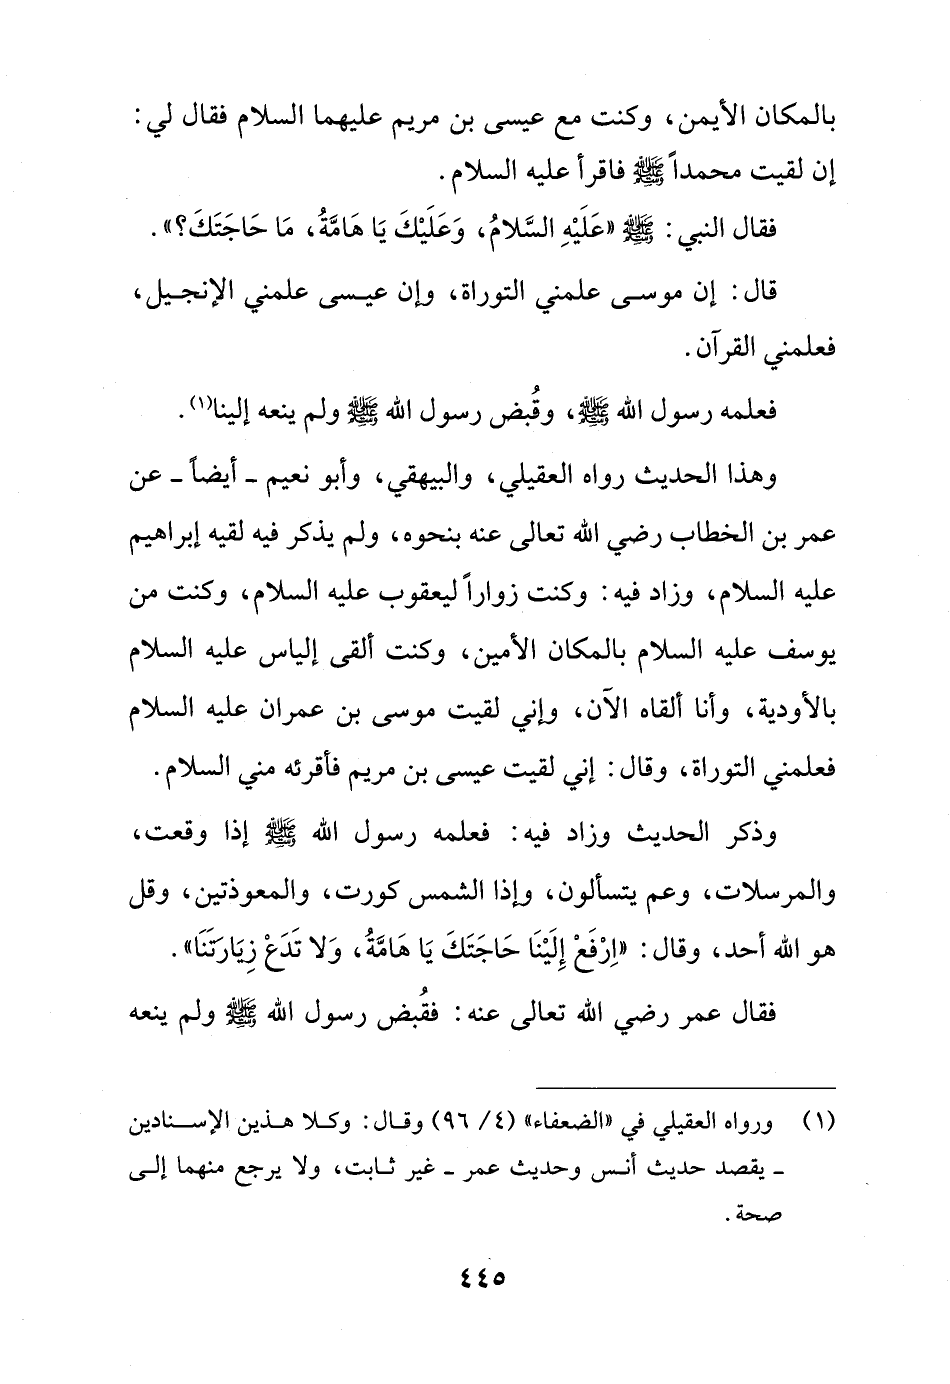 بالمكان الأيمن، وكنت مع عيسى بن مريم عليهما السلام فقال لي:
إن لقيت محمداً ﷺ فاقرأ عليه السلام.
فقال النبي: ﷺ «عَلَيْهِ السَّلامُ، وَعَلَيْكَ يَا هَامَّةُ، مَا حَاجَتَكَ؟».
قال: إن موسى علمني التوراة، وإن عيسى علمني الإنجيل،
فعلمني القرآن.
فعلمه رسول الله ﷺ، وقُبض رسول الله ﷺ ولم ينعه إلينا(١).
وهذا الحديث رواه العقيلي، والبيهقي، وأبو نعيم - أيضاً - عن
عمر بن الخطاب رضي الله تعالى عنه بنحوه، ولم يذكر فيه لقيه إبراهيم
عليه السلام، وزاد فيه: وكنت زواراً ليعقوب عليه السلام، وكنت من
يوسف عليه السلام بالمكان الأمين، وكنت ألقى إلياس عليه السلام
بالأودية، وأنا ألقاه الآن، وإني لقيت موسى بن عمران عليه السلام
فعلمني التوراة، وقال: إني لقيت عيسى بن مريم فأقرئه مني السلام.
وذكر الحديث وزاد فيه: فعلمه رسول الله ﷺ إذا وقعت،
والمرسلات، وعم يتسألون، وإذا الشمس كورت، والمعوذتين، وقل
هو الله أحد، وقال: «اِرْفَعْ إِلَيْنَا حَاجَتَكَ يَا هَامَّةُ، وَلا تَدَعْ زِيَارَتَنَا».
فقال عمر رضي الله تعالى عنه: فقُبض رسول الله ﷺ ولم ينعه
(١) ورواه العقيلي في «الضعفاء» (٤/ ٩٦) وقال: وكلا هذين الإسنادين
- يقصد حديث أنس وحديث عمر - غير ثابت، ولا يرجع منهما إلى
صحة.
٤٤٥